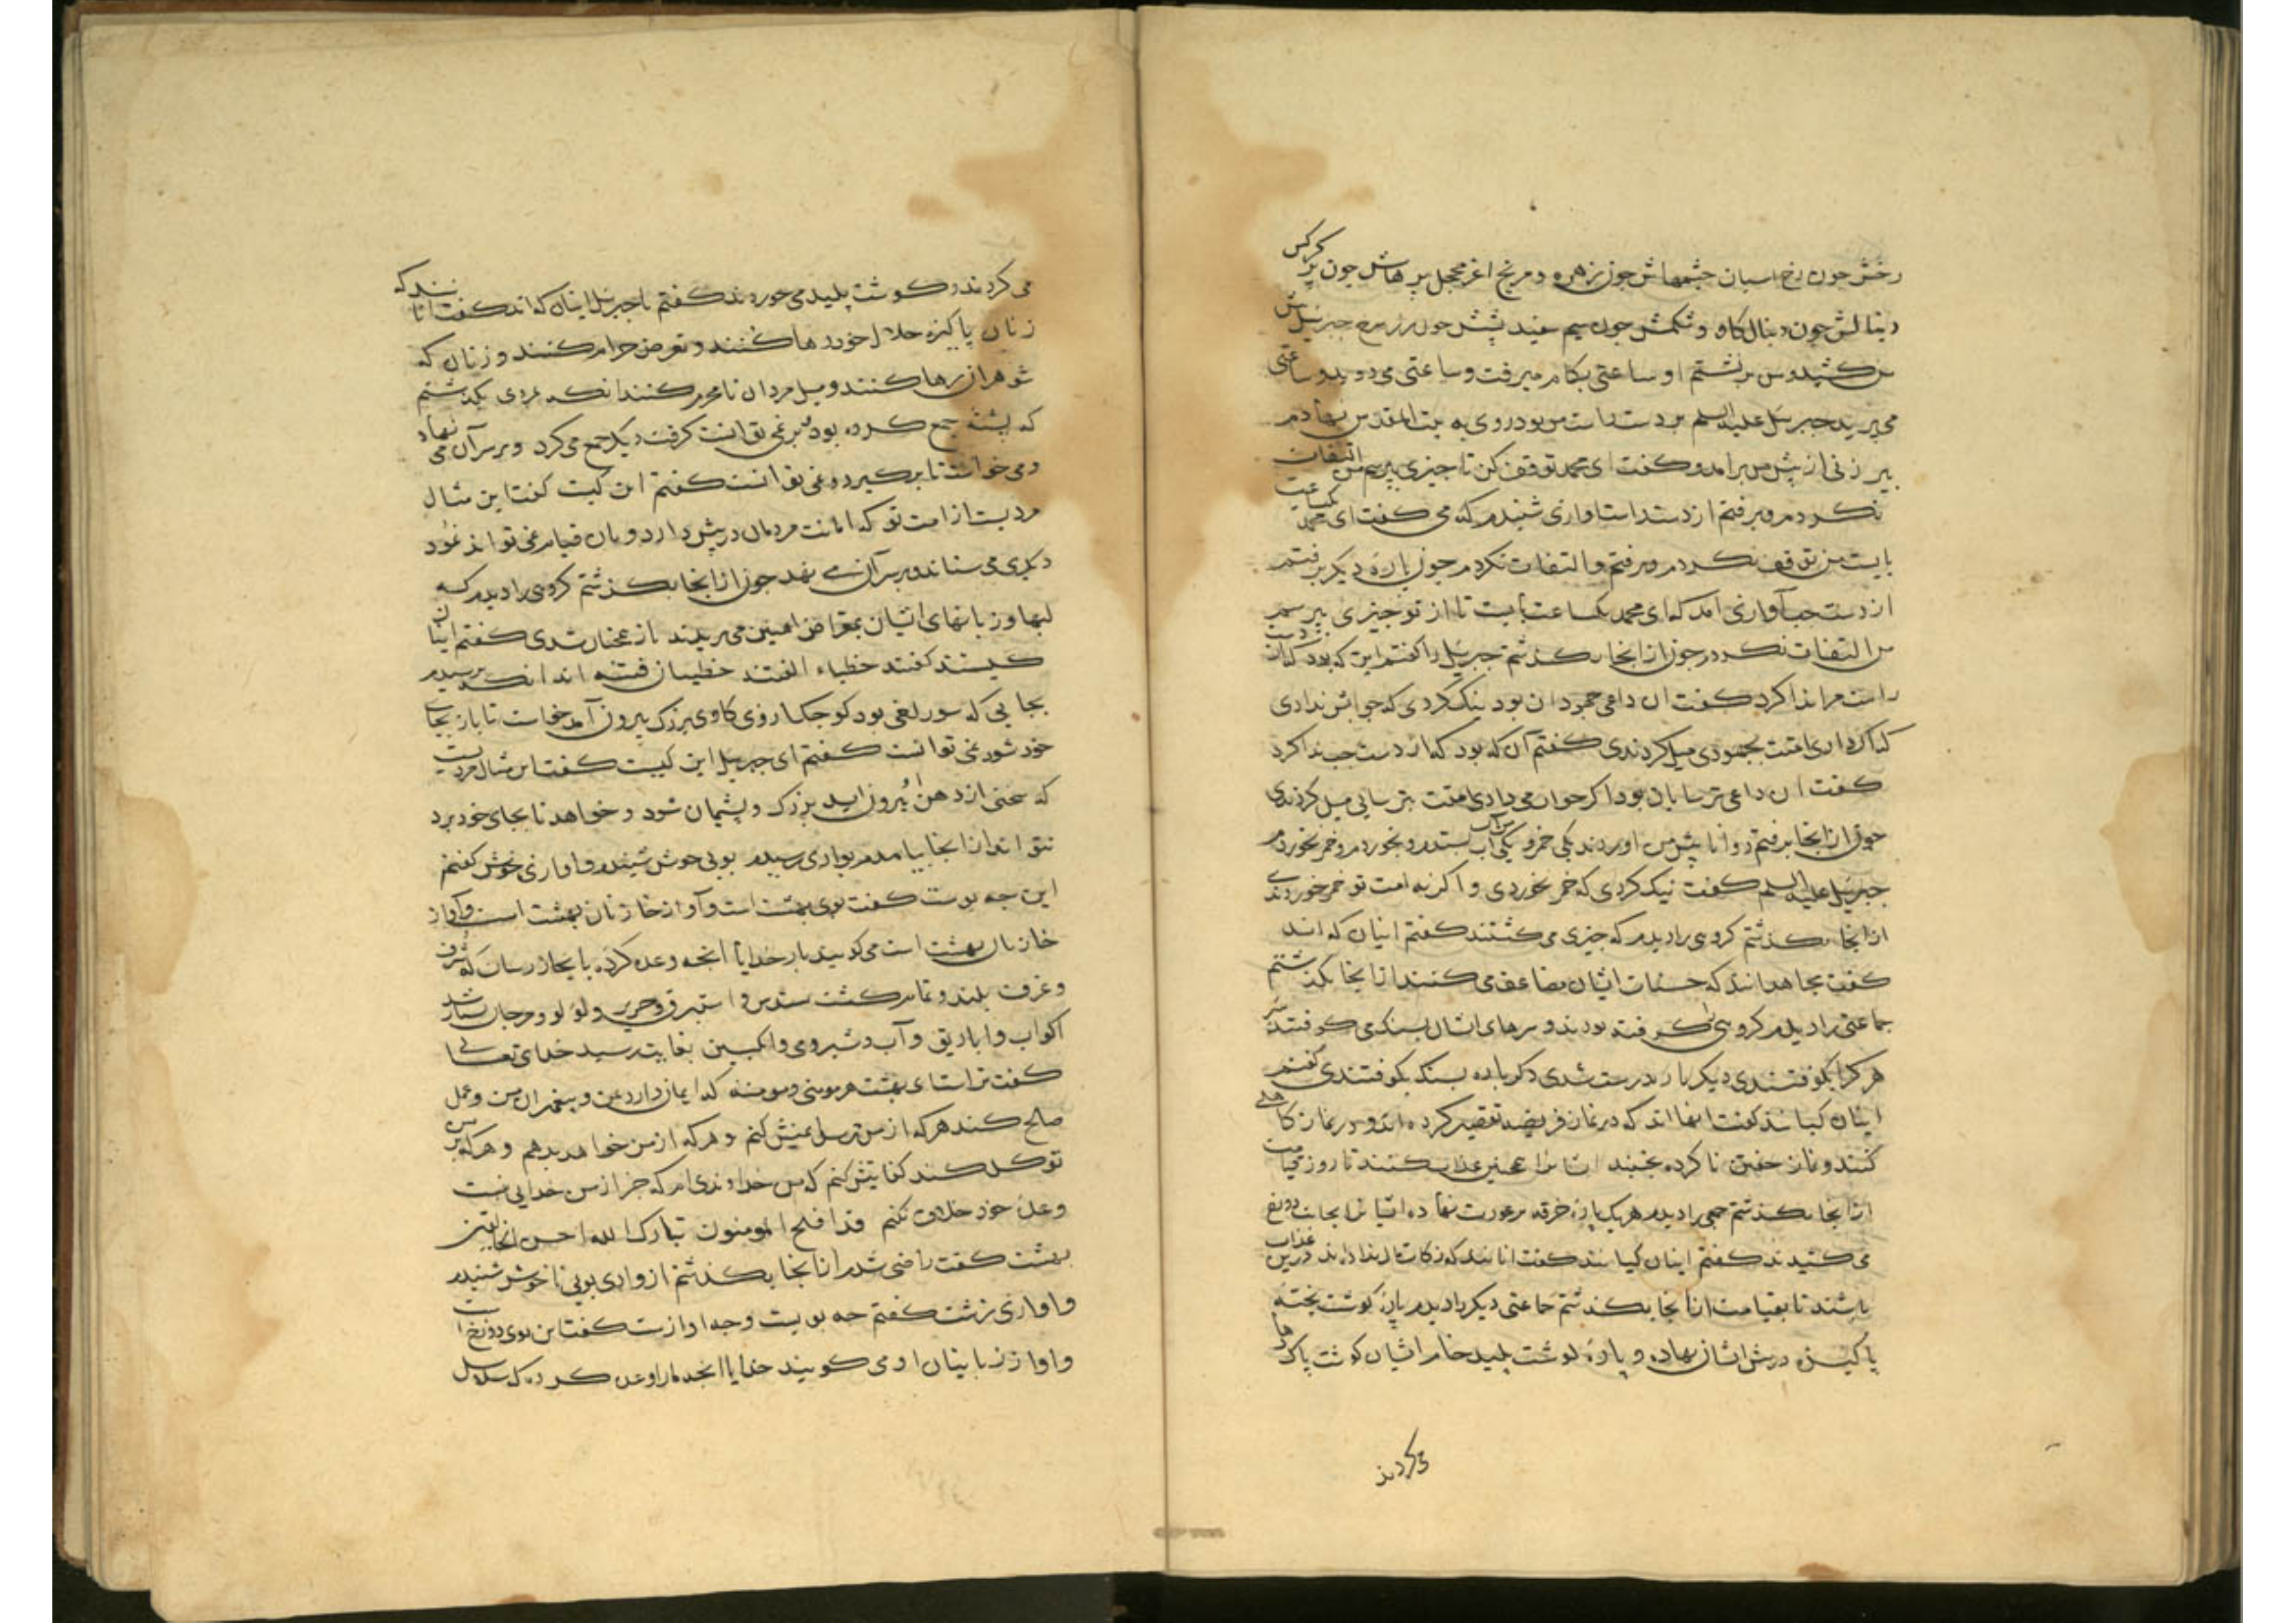 رخش چون رخ اسبان چشمهاش چون زهره و مریخ اغر محجل پرهاش چون پر کرکس
دنبالش چون دنبال کاو و شکمش چون سیم سفید پشتش چون زر سرخ جبرئیل
کشید و من برنشستم او ساعتی بکام میرفت و ساعتی می دوید و ساعتی
می پرید جبرئیل علیه السلم بر دست راست من بود روی به بیت المقدس نهادم
پیر زنی از پیش من برامد و کفت ای محمد توقف کن تا چیزی بپرسم من التفات
نکردم و برفتم از دست راست اوازی شنیدم که می کفت ای محمد یکساعت
بایست من توقف نکردم و برفتم و التفات نکردم چون پاره دیکر برفتم
از دست چپ آوازی امد که ای محمد یکساعت بایست تا از تو چیزی بپرسم
من التفات نکردم چون از انجا بکذشتم جبرئیل را کفتم این که بود کی از دست
راست مرا ندا کرد کفت ان داعی جهودان بود نیک کردی که جوابش ندادی
که اکر دادی امتت بجهودی میل کردندی کفتم آن که بود که از دست چپ ندا کرد
کفت ان داعی ترسایان بود اکر جواب می دادی امتت بترسایی میل کردندی
چون از انجا برفتم دو انا پیش من اوردند یکی خمر و یکی آب من آب بستدم و بخوردم و خمر نخوردم
جبرئیل علیه السلم کفت نیک کردی که خمر نخوردی و اکر نه امت تو خمر خوردندی
از انجا بکذشتم کروهی را دیدم که چیزی می کشتند کفتم اینان که اند
کفت مجاهدانند که حسنات ایشان مضاعف می کنند از انجا بکذشتم
جماعتی را دیدم کروهی کوفته بودند و سرهای ایشان بسنک می کوفتند
هر کرا بکوفتندی دیکر بار درست شدی دکر باره بسنک بکوفتندی کفتم
اینان کیانند کفت اینها اند که در نماز فریضه تقصیر کرده اند و در نماز کاهلی
کنند و نماز خفتن ناکرده بخسبند ایشانرا همچنین عذاب کنند تا روز قیامت
از انجا بکذشتم جمعی را دیدم هر یک پاره خرقه بر عورت نهاده ایشانرا بجانب دوزخ
می کشیدند کفتم اینان کیانند کفت انانند که زکات مال نداده اند درین عذاب
باشند تا بقیامت از انجا بکذشتم جماعتی دیکر را دیدم پاره کوشت پخته
پاکیزه در پیش ایشان نهاده و پاره کوشت پلید خام ایشان کوشت پاک رها
می کردند
می کردند و کوشت پلید می خوردند کفتم یا جبرئیل اینان که اند کفت انانند که
زنان پاکیزه حلال خود رها کنند و تعرض حرام کنند و زنان که
شوهران رها کنند و میل مردان نامحرم کنند انکه بمردی بکذشتم
که پشته جمع کرده بود برنمی توانست کرفت دیکر جمع می کرد و برسر آن می نهاد
و می خواست تا برکیرد و نمی توانست کفتم این کیست کفت این مثال
مردیست از امت تو که امانت مردمان در پیش دارد و بان قیام نمی تواند نمود
دیکری می ستاند و برسر آن می نهد چون از انجا بکذشتم کروهی را دیدم که
لبها و زبانهای ایشان بمقراض اهنین می بریدند باز همچنان شدی کفتم اینان
کیستند کفت خطباء الفتنه خطیبان فتنه اند انکه برسیدم
بجایی که سوراخی بود کوچک ازوی کاوی بزرک بیرون آمد خواست تا باز بجای
خود شود نمی توانست کفتم ای جبرئیل این کیست کفت این مثال مردیست
که سخنی از دهن او بیرون اید بزرک و پشیمان شود و خواهد تا بجای خود برد
نتواند از انجا بیامدم بوادی رسیدم بویی خوش شنیدم و اوازی خوش کفتم
این چه بوست کفت بوی بهشت است و آواز خازنان بهشت است و آواز
خازنان بهشت است می کویند بار خدایا انچه وعده کرده بما بجا رسان که
و غرف بلند و تمام کشت سندس و استبرق و حریر و لؤلؤ و مرجان بسیار شد
اکواب و اباریق و آب و شیر و می و انکبین بغایت رسید خدای تعالی
کفت تراست ای بهشت هر مومنی و مومنه که ایمان دارد بمن و بپیغمبران من و عمل
صالح کند هر که از من ترسد ایمنش کنم و هر که از من خواهد بدهم و هر که بر من
توکل کند کفایتش کنم که من خداوندی ام که جز از من خدایی نیست
وعده خود خلاف نکنم قد افلح المومنون تبارک الله احسن الخالقین
بهشت کفت راضی شدم از انجا بکذشتم از وادی بویی ناخوش شنیدم
و اوازی زشت کفتم چه بویست و چه اوازست کفت این بوی دوزخ است
و اواز زبانیان او می کویند خدایا انچه مارا وعده کرده که سلاسل